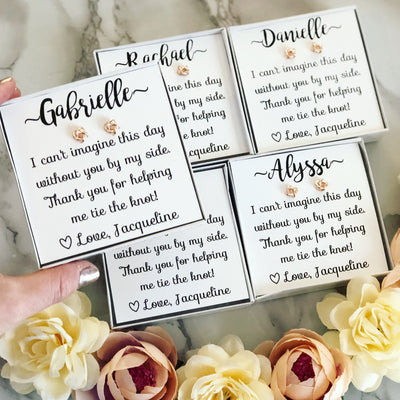 Gabrielle
I can't imagine this day
without you by my side.
Thank you for helping
me tie the knot!
♡ Love, Jacqueline
Rachael
imagine this day
you by my side.
you for helping
tie the knot!
Jacqueline
Danielle
I can't imagine this day
without you by my side.
Thank you for helping
me tie the knot!
♡ Love, Jacqueline
without you by my side.
Thank you for helping
me tie the knot!
♡ Love, Jacqueline
Alyssa
I can't imagine this day
without you by my side.
Thank you for helping
me tie the knot!
♡ Love, Jacqueline